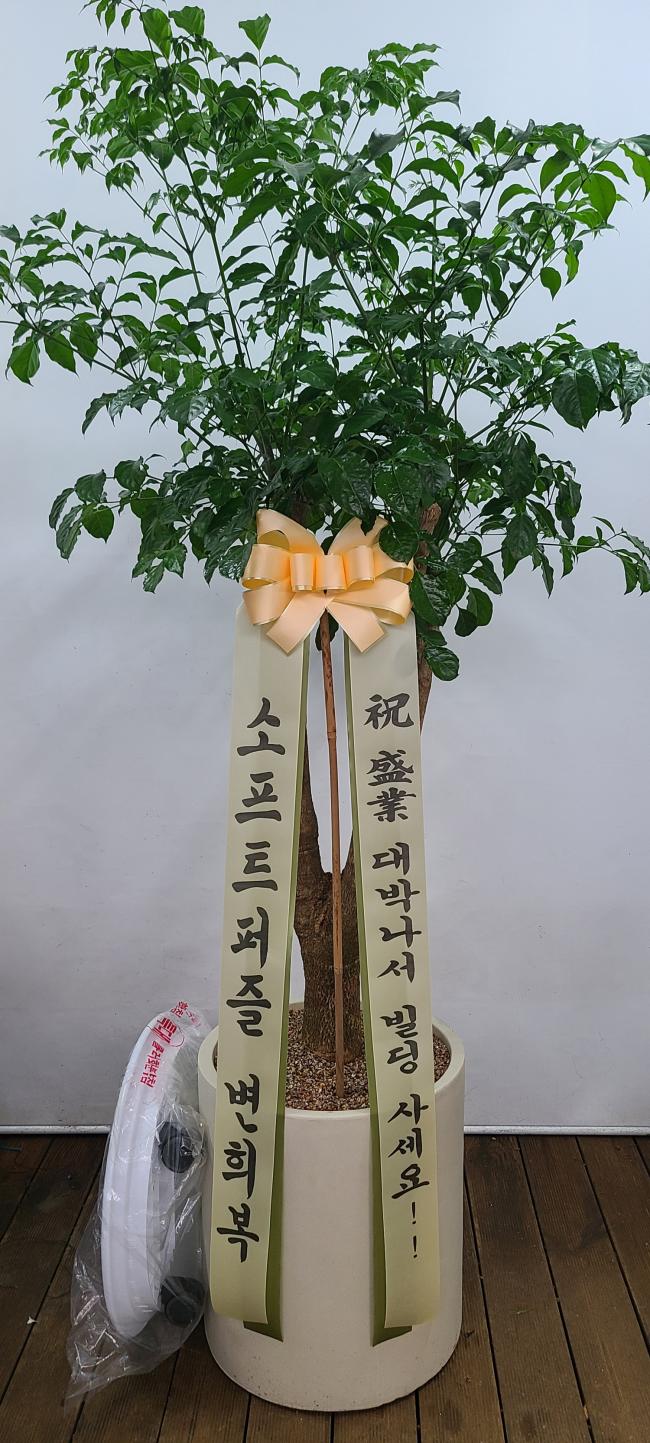 祝 盛業 대박나서 빌딩 사세요!!
소프트퍼즐 변희복